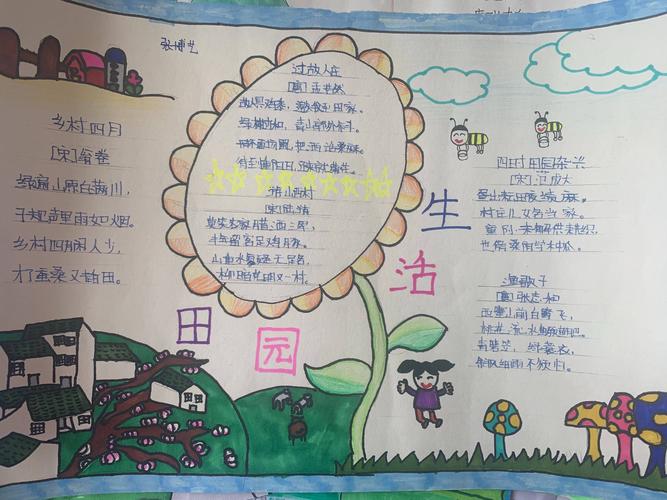 张博艺
乡村四月
[宋]翁卷
绿遍山原白满川，
子规声里雨如烟。
乡村四月闲人少，
才蚕桑又插田。
过故人庄
[唐]孟浩然
故人具鸡黍，邀我至田家。
绿树村边合，青山郭外斜。
开轩面场圃，把酒话桑麻。
待到重阳日，还来就菊花。
游山西村
[宋]陆游
莫笑农家腊酒浑，
丰年留客足鸡豚。
山重水复疑无路，
柳暗花明又一村。
田
园
生
活
四时田园杂兴
[宋]范成大
昼出耘田夜绩麻，
村庄儿女各当家。
童孙未解供耕织，
也傍桑阴学种瓜。
渔歌子
[唐]张志和
西塞山前白鹭飞，
桃花流水鳜鱼肥。
青箬笠，绿蓑衣，
斜风细雨不须归。